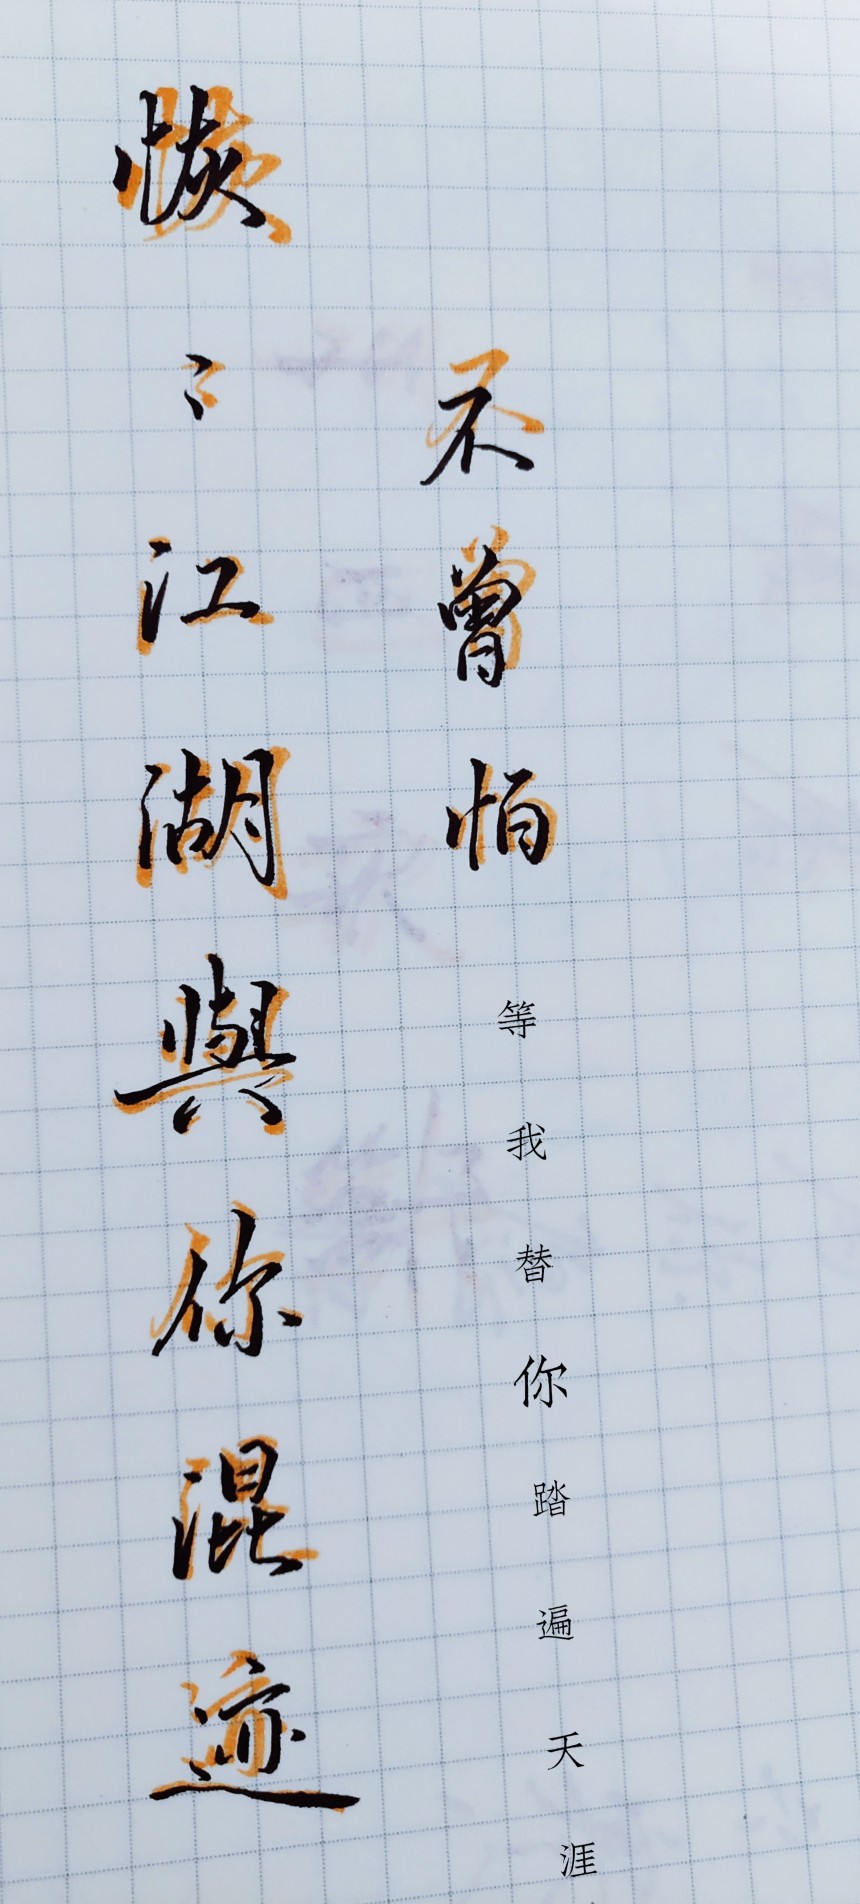 恢〻江湖與你混迹
不曾怕
等我替你踏遍天涯